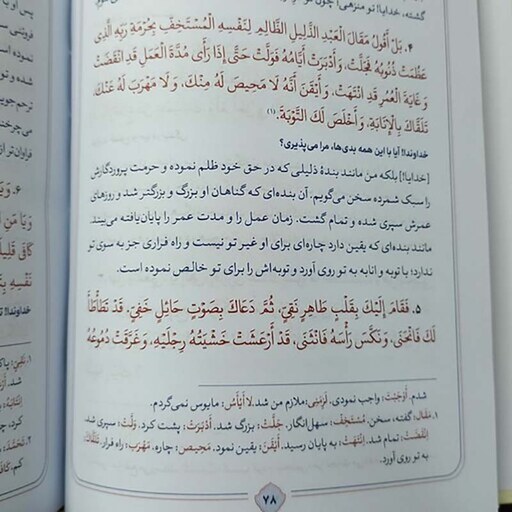 گشته، خدایا! تو منزهی! چون تو
۴. بَلْ أَقُولُ مَقَالَ الْعَبْدِ الذَّلِيلِ الظَّالِمِ لِنَفْسِهِ الْمُسْتَخِفِّ بِحُرْمَةِ رَبِّهِ الَّذِي
عَظُمَتْ ذُنُوبُهُ فَجَلَّتْ، وَأَدْبَرَتْ أَيَّامُهُ فَوَلَّتْ حَتَّى إِذَا رَأَى مُدَّةَ الْعَمَلِ قَدِ انْقَضَتْ
وَغَايَةَ الْعُمُرِ قَدِ انْتَهَتْ، وَأَيْقَنَ أَنَّهُ لَا مَحِيصَ لَهُ مِنْكَ، وَلَا مَهْرَبَ لَهُ عَنْكَ،
تَلَقَّاكَ بِالْإِنَابَةِ، وَأَخْلَصَ لَكَ التَّوْبَةَ.(۱)
خداوندا! آیا با این همه بدی‌ها، مرا می‌پذیری؟
[خدایا!] بلکه من مانند بندهٔ ذلیلی که در حق خود ظلم نموده و حرمت پروردگارش
را سبک شمرده سخن می‌گویم. آن بنده‌ای که گناهان او بزرگ و بزرگتر شد و روزهای
عمرش سپری شده و تمام گشت. زمان عمل را و مدت عمر را پایان‌یافته می‌بیند.
مانند بنده‌ای که یقین دارد چاره‌ای برای او غیر تو نیست و راه فراری جز به سوی تو
ندارد؛ با توبه و انابه به تو روی آورد و توبه‌اش را برای تو خالص نموده است.
۵. فَقَامَ إِلَيْكَ بِقَلْبٍ طَاهِرٍ نَقِيٍّ، ثُمَّ دَعَاكَ بِصَوْتٍ حَائِلٍ خَفِيٍّ، قَدْ تَطَأْطَأَ
لَكَ فَانْحَنَى، وَنَكَّسَ رَأْسَهُ فَانْثَنَى، قَدْ أَرْعَشَتْ خَشْيَتُهُ رِجْلَيْهِ، وَغَرَّقَتْ دُمُوعُهُ
شدم. أَوْجَبَتْ: واجب نمودی. لَزِمَنِي: ملازم من شد. لَا أَيْأَسُ: مایوس نمی‌گردم.
۱. مَقَالَ: گفته، سخن. مُسْتَخِفِّ: سهل‌انگار. جَلَّتْ: بزرگ شد. أَدْبَرَتْ: پشت کرد. وَلَّتْ: سپری شد.
اِنْقَضَتْ: تمام شد. اِنْتَهَتْ: به پایان رسید. أَيْقَنَ: یقین نمود. مَحِيصَ: چاره. مَهْرَبَ: راه فرار. تَلَقَّاكَ:
به تو روی آورد.
۷۸